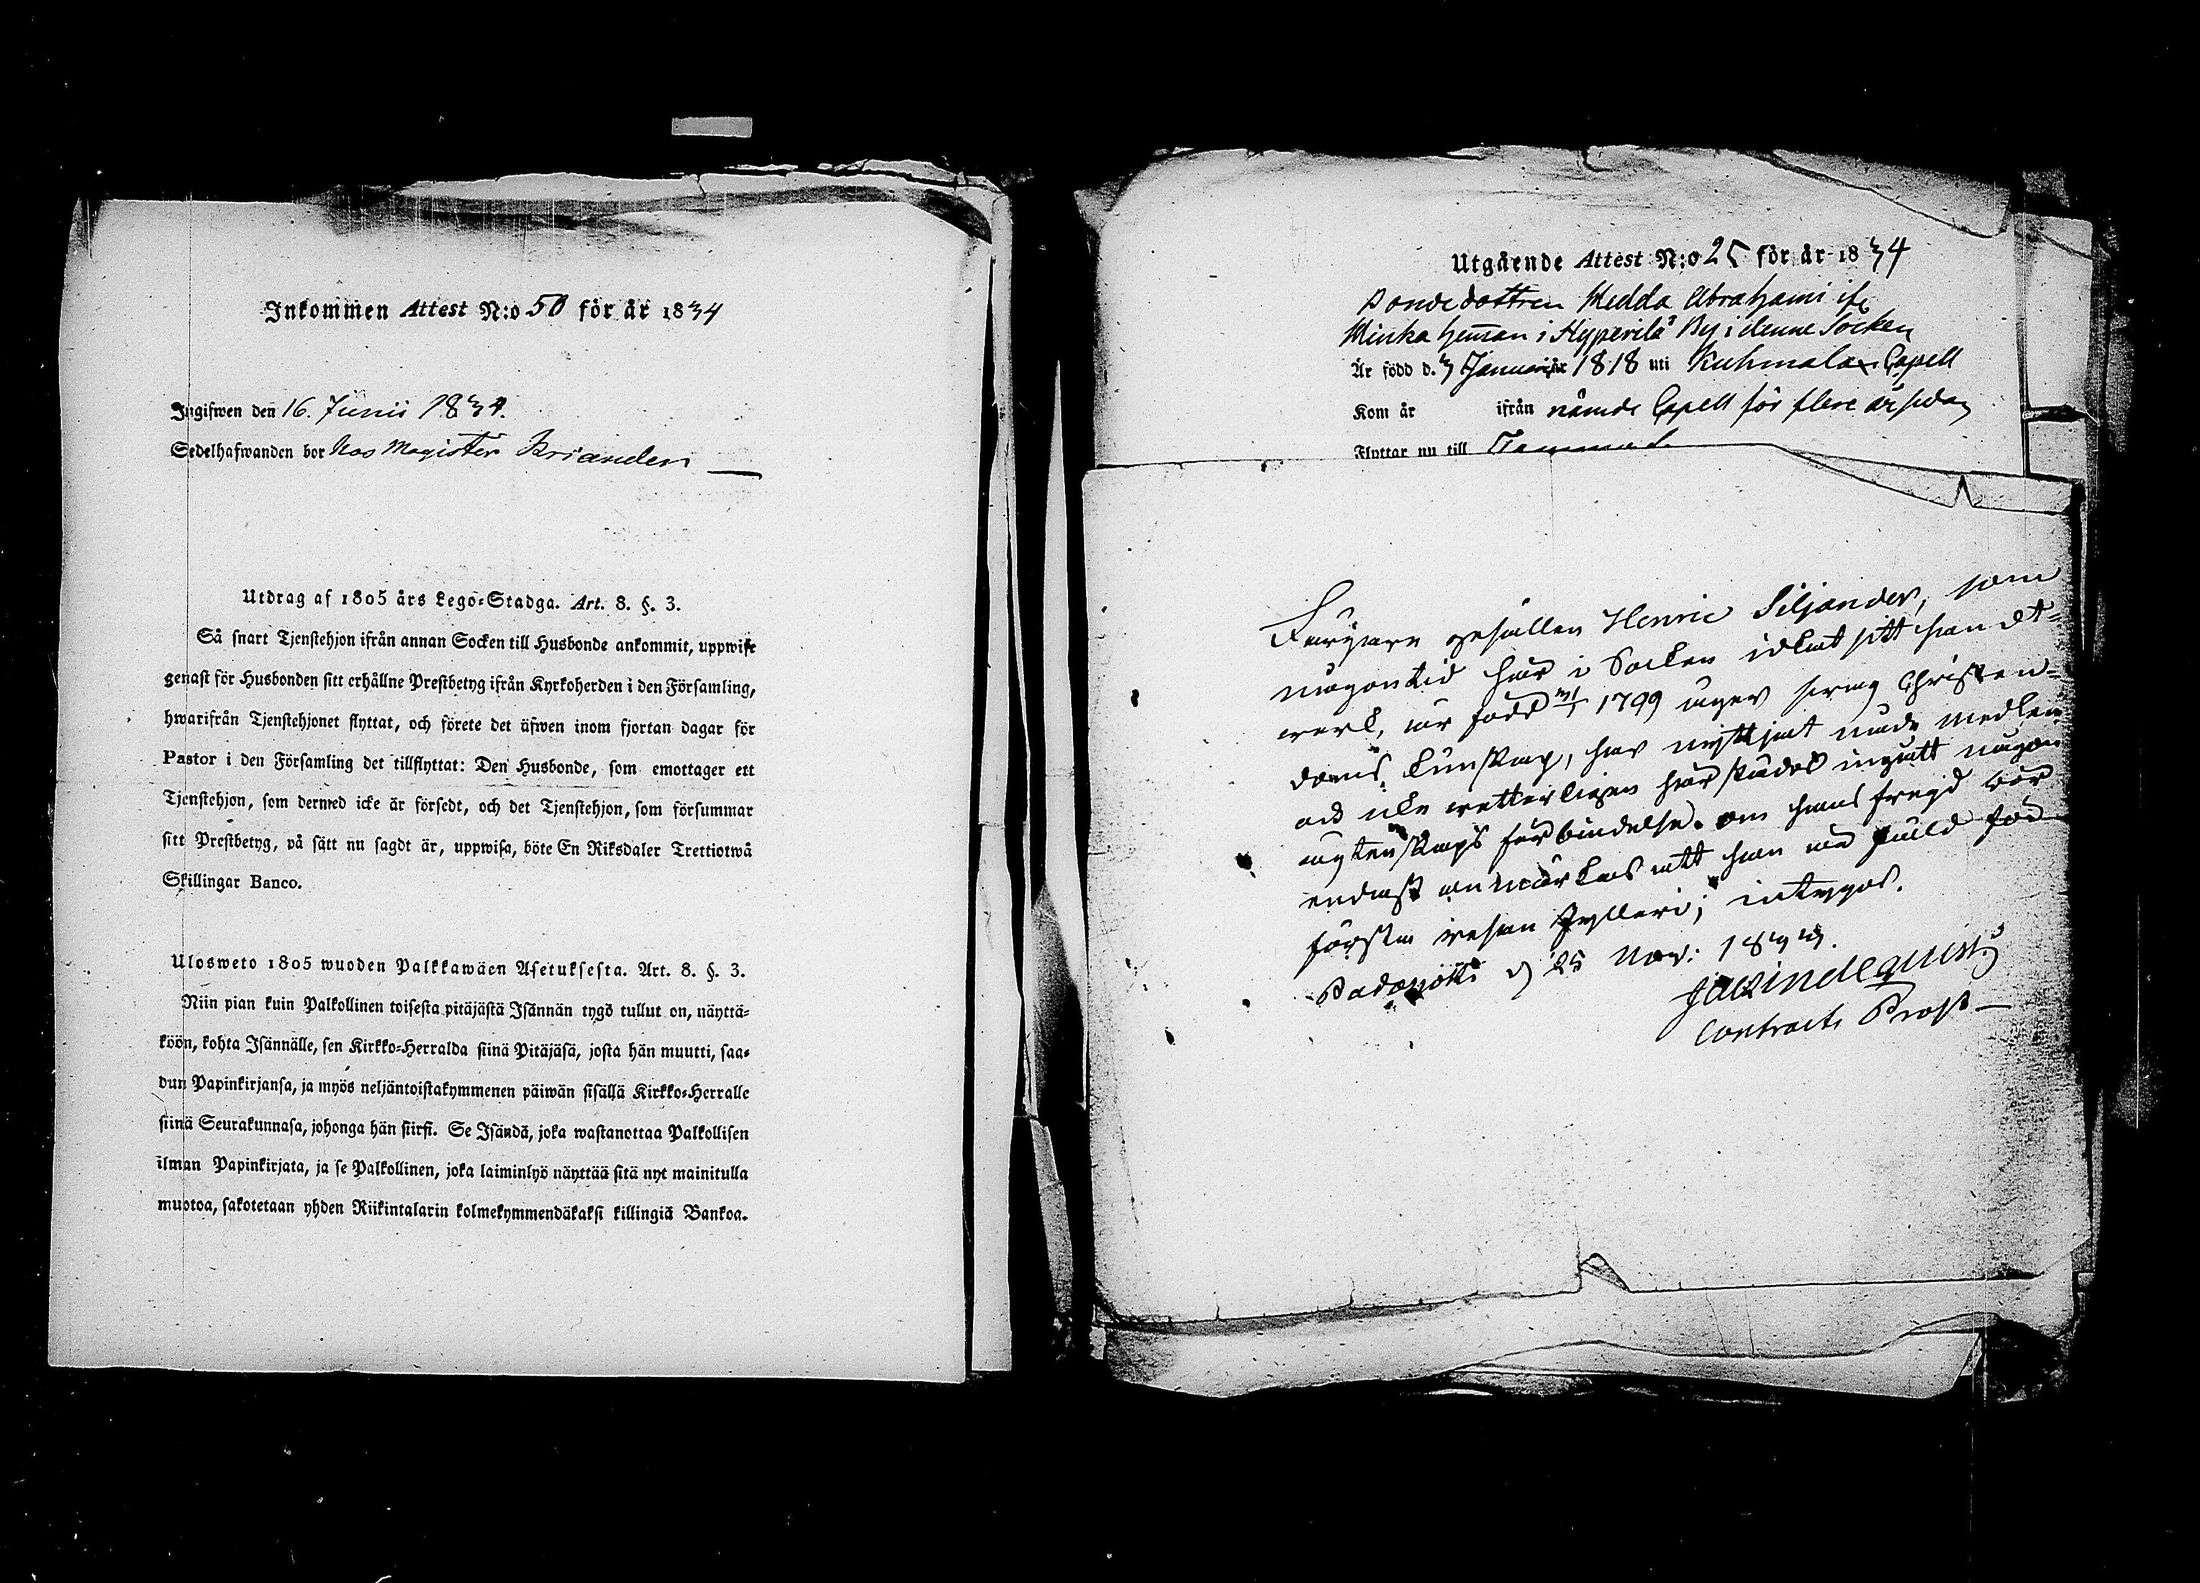 Inkommen Attest N:o 50 för år 1834
Ingifwen den 16. Junii 1834.
Sedelhafwanden bor Hos Magister Brianden
Utdrag af 1805 års Lego=Stadga. Art. 8. §. 3.
Så snart Tjenstehjon ifrån annan Socken till Husbonde ankommit, uppwise
genast för Husbonden sitt erhållne Prestbetyg ifrån Kyrkoherden i den Församling,
hwarifrån Tjenstehjonet flyttat, och förete det äfwen inom fjortan dagar för
Pastor i den Församling det tillflyttat: Den Husbonde, som emottager ett
Tjenstehjon, som dermed icke är försedt, och det Tjenstehjon, som försummar
sitt Prestbetyg, på sätt nu sagdt är, uppwisa, böte En Riksdaler Trettiotwå
Skillingar Banco.
Ulosweto 1805 wuoden Palkkawäen Asetuksesta. Art. 8. §. 3.
Niin pian kuin Palkollinen toisesta pitäjästä Isännän tygö tullut on, näyttä=
köön, kohta Isännälle, sen Kirkko=Herralda siinä Pitäjäsä, josta hän muutti, saa=
dun Papinkirjansa, ja myös neljäntoistakymmenen päiwän sisällä Kirkko=Herralle
siinä Seurakunnasa, johonga hän siirsi. Se Isändä, joka wastanottaa Palkollisen
ilman Papinkirjata, ja se Palkollinen, joka laiminlyö näyttää sitä nyt mainitulla
muotoa, sakotetaan yhden Riikintalarin kolmekymmendäkaksi killingiä Bankoa.
Utgående Attest N:o 25 för år 1834
Bondedottren Hedda Abrahami if
heman i Hyperilä By i denne Socken
Är född d. 3 Januarii 1818 uti Kuhmalax Capell
Kom år ifrån nämde Capell för flere år sedan
Flyttar nu till
Färgare gesällen Henric Siljander, som
någon tid här i Socken idkat sitt handt=
werk, är född 1799 äger swag Christen=
doms kunskap, har nyttjat nåde medlen
och icke wetterligen härstädes ingått någon
äktenskaps förbindelse. om hans fregd bör
endast anmärkas att han är fälld för
första resan fylleri; intygas.
Padasjoki d 25 Nov: 1833.
Lindequist
Contracts Prost